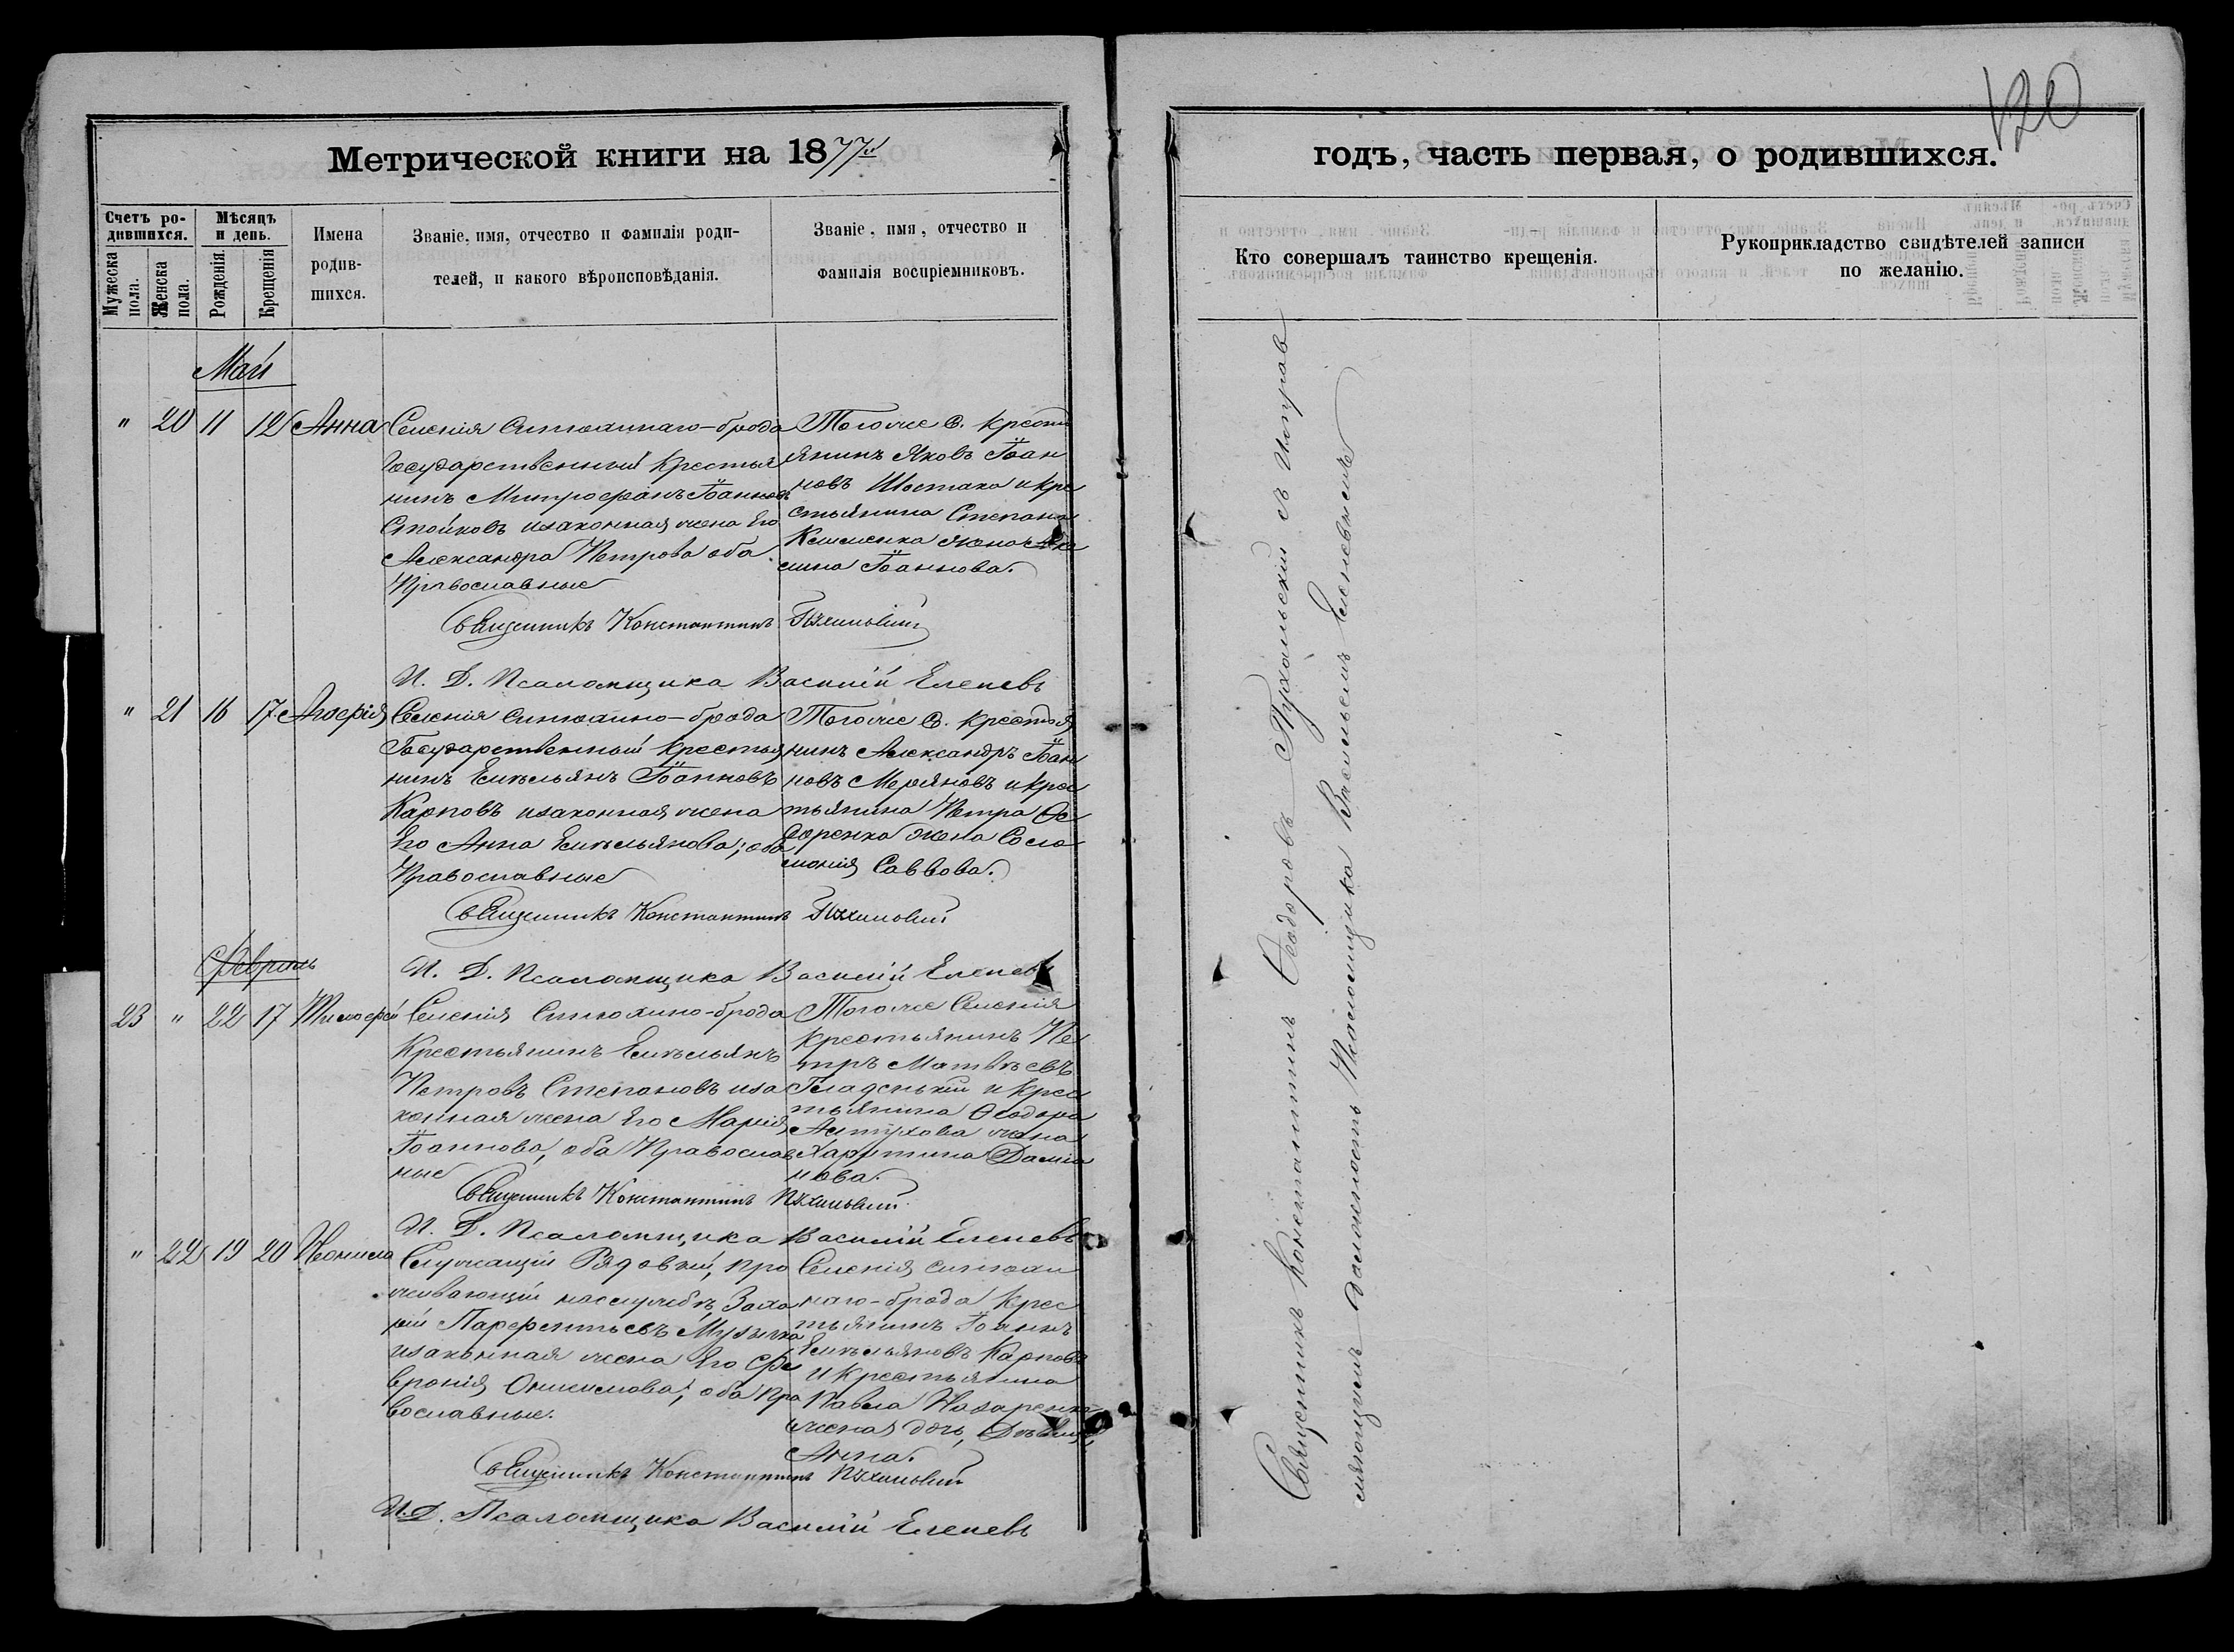 120
Метрической книги на 1877й
годъ, часть первая, о родившихся.
Счетъ родившихся.
Мужеска пола.
Женска пола.
Мѣсяцъ и день.
Рожденія.
Крещенія.
Имена родившихся.
Званіе, имя, отчество и фамилія родителей, и какого вѣроисповѣданія.
Званіе, имя, отчество и фамилія восприемниковъ.
Кто совершалъ таинство крещенія.
Рукоприкладство свидѣтелей записи по желанію.
Май
" 20 11 12 Анна
Селенія Синюхинаго-брода
Государственный Крестья
нинъ Митрофанъ Іоанновъ
Стойковъ изаконная жена Его
Александра Петрова оба
Православные
Тогоже С. Крестья
янинъ Яковъ Іоан
новъ Шостака и кре
стьянина Степана
жена
Іоаннова.
Священникъ Константинъ
И. Д. Псаломщика Василій Еленевъ
" 21 16 17 Глѵкерія
Селенія Синюхино-брода
Государственный Крестья
нинъ Емельянъ Іоанновъ
Карповъ изаконная жена
Его Анна Емельянова; оба
Православные
Тогоже С. Крестья
нинъ Александръ Іоан
новъ и крес
тьянина Петра Ѳе
доренка жена Соло
монія Саввова.
Священникъ Константинъ
И. Д. Псаломщика Василій Еленевъ
Февраль
23 " 22 17 Тимофей
Селенія Синюхино-брода
Крестьянинъ Емельянъ
Петровъ Степановъ иза
конная жена Его Марія
Іоаннова, оба Православ
ные
Тогоже Селенія
крестьянинъ Пе
тръ Матвѣевъ
Гладенький и крес
тьянина Ѳеодора
жена
Харитина Даміа
нова.
Священникъ Константинъ
И. Д. Псаломщика Василій Еленевъ
" 22 19 20 Неонила
Служащій Рядовий, про
живающій наслужбѣ, Заха
рій Парфентьевъ Музыка
изаконная жена Его Фе
вронія Онисимова; оба Пра
вославные.
Селенія Синюхи
наго-брода Крес
тьянинъ Іоаннъ
Емельяновъ Карповъ
и крестьянина
Павла Назаренка
дочь, Дѣвица,
Анна.
Священникъ Константинъ
И. Д. Псаломщика Василій Еленевъ
Священникъ Константинъ Ѳеодоровъ съ Исправ
ляющимъ должность Псаломщика Василіемъ Еленевымъ